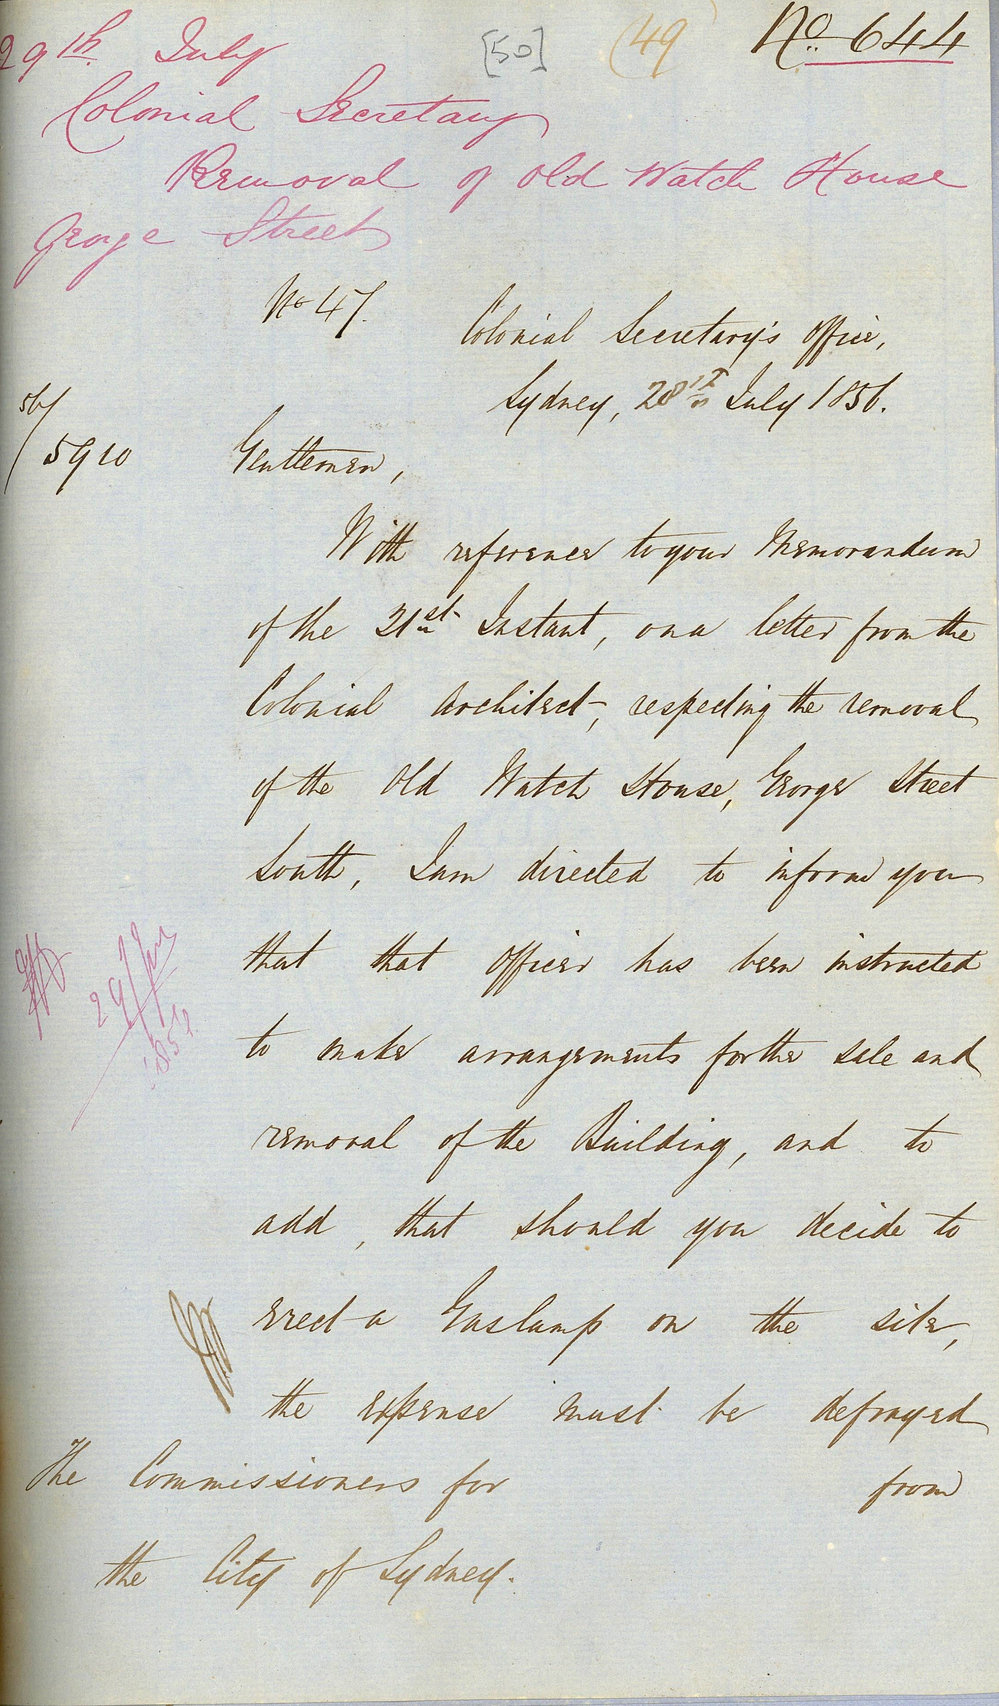 29th July [50] (49 No. 644
Colonial Secretary
Removal of Old Watch House
George Street
No 47.
Colonial Secretary's Office,
Sydney, 28th July 1856.
56/
5910
Gentlemen,
With reference to your Memorandum
of the 21st Instant, on a letter from the
Colonial Architect, respecting the removal
of the Old Watch House, George Street
South, I am directed to inform you
that that Officer has been instructed
to make arrangements for the sale and
removal of the Building, and to
add, that should you decide to
erect a Gaslamp on the site,
the expense must be defrayed
from
The Commissioners for
the City of Sydney.
29/July